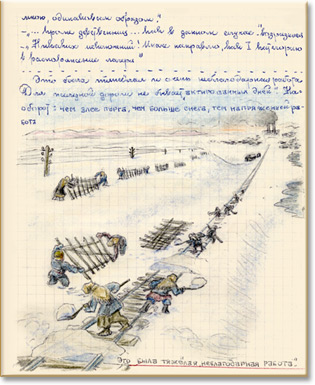 мною, одинаковым образом."
-„... кроме
в данном случае
„Никаких исключений! Иначе направлю, как I категорию
в распоряжение лагеря"
Это была тяжелая и очень неблагодарная работа.
Для железной дороги не бывает „актированных дней". На-
оборот: чем злее пурга, чем больше снега, тем напряженней ра-
бота
„Это была тяжелая, неблагодарная работа."